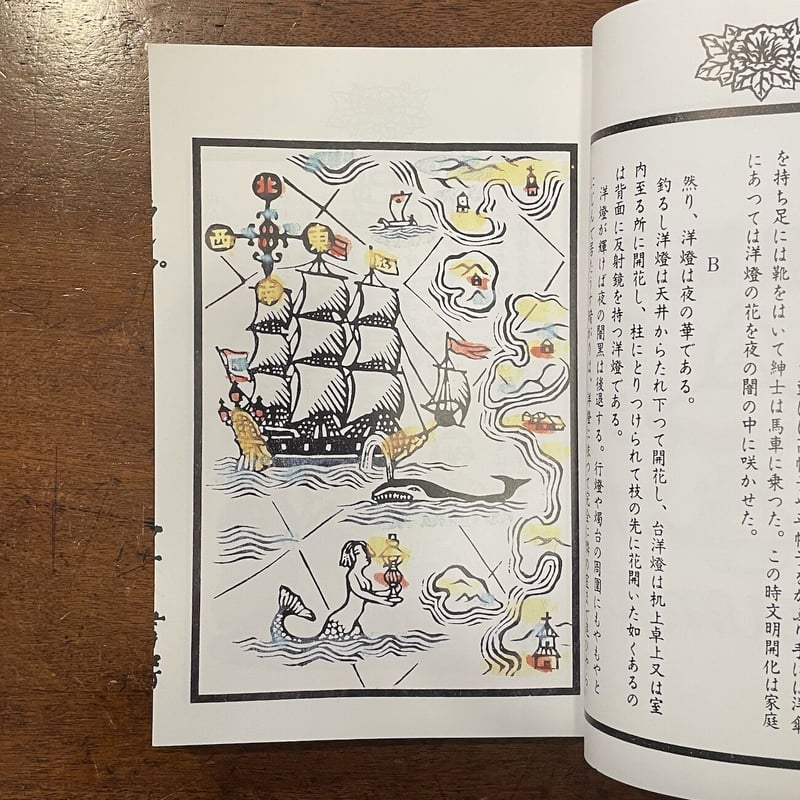 かぶり手には洋傘
を持ち足には靴をはいて紳士は馬車に乗つた。この時文明開化は家庭
にあつては洋燈の花を夜の闇の中に咲かせた。
B
然り、洋燈は夜の華である。
釣るし洋燈は天井からたれ下つて開花し、台洋燈は机上卓上又は室
内至る所に開花し、柱にとりつけられて枝の先に花開いた如くあるの
は背面に反射鏡を持つ洋燈である。
洋燈が輝けば夜の闇黒は後退する。行燈や燭台の周囲にもやもやと
北
東
西
南